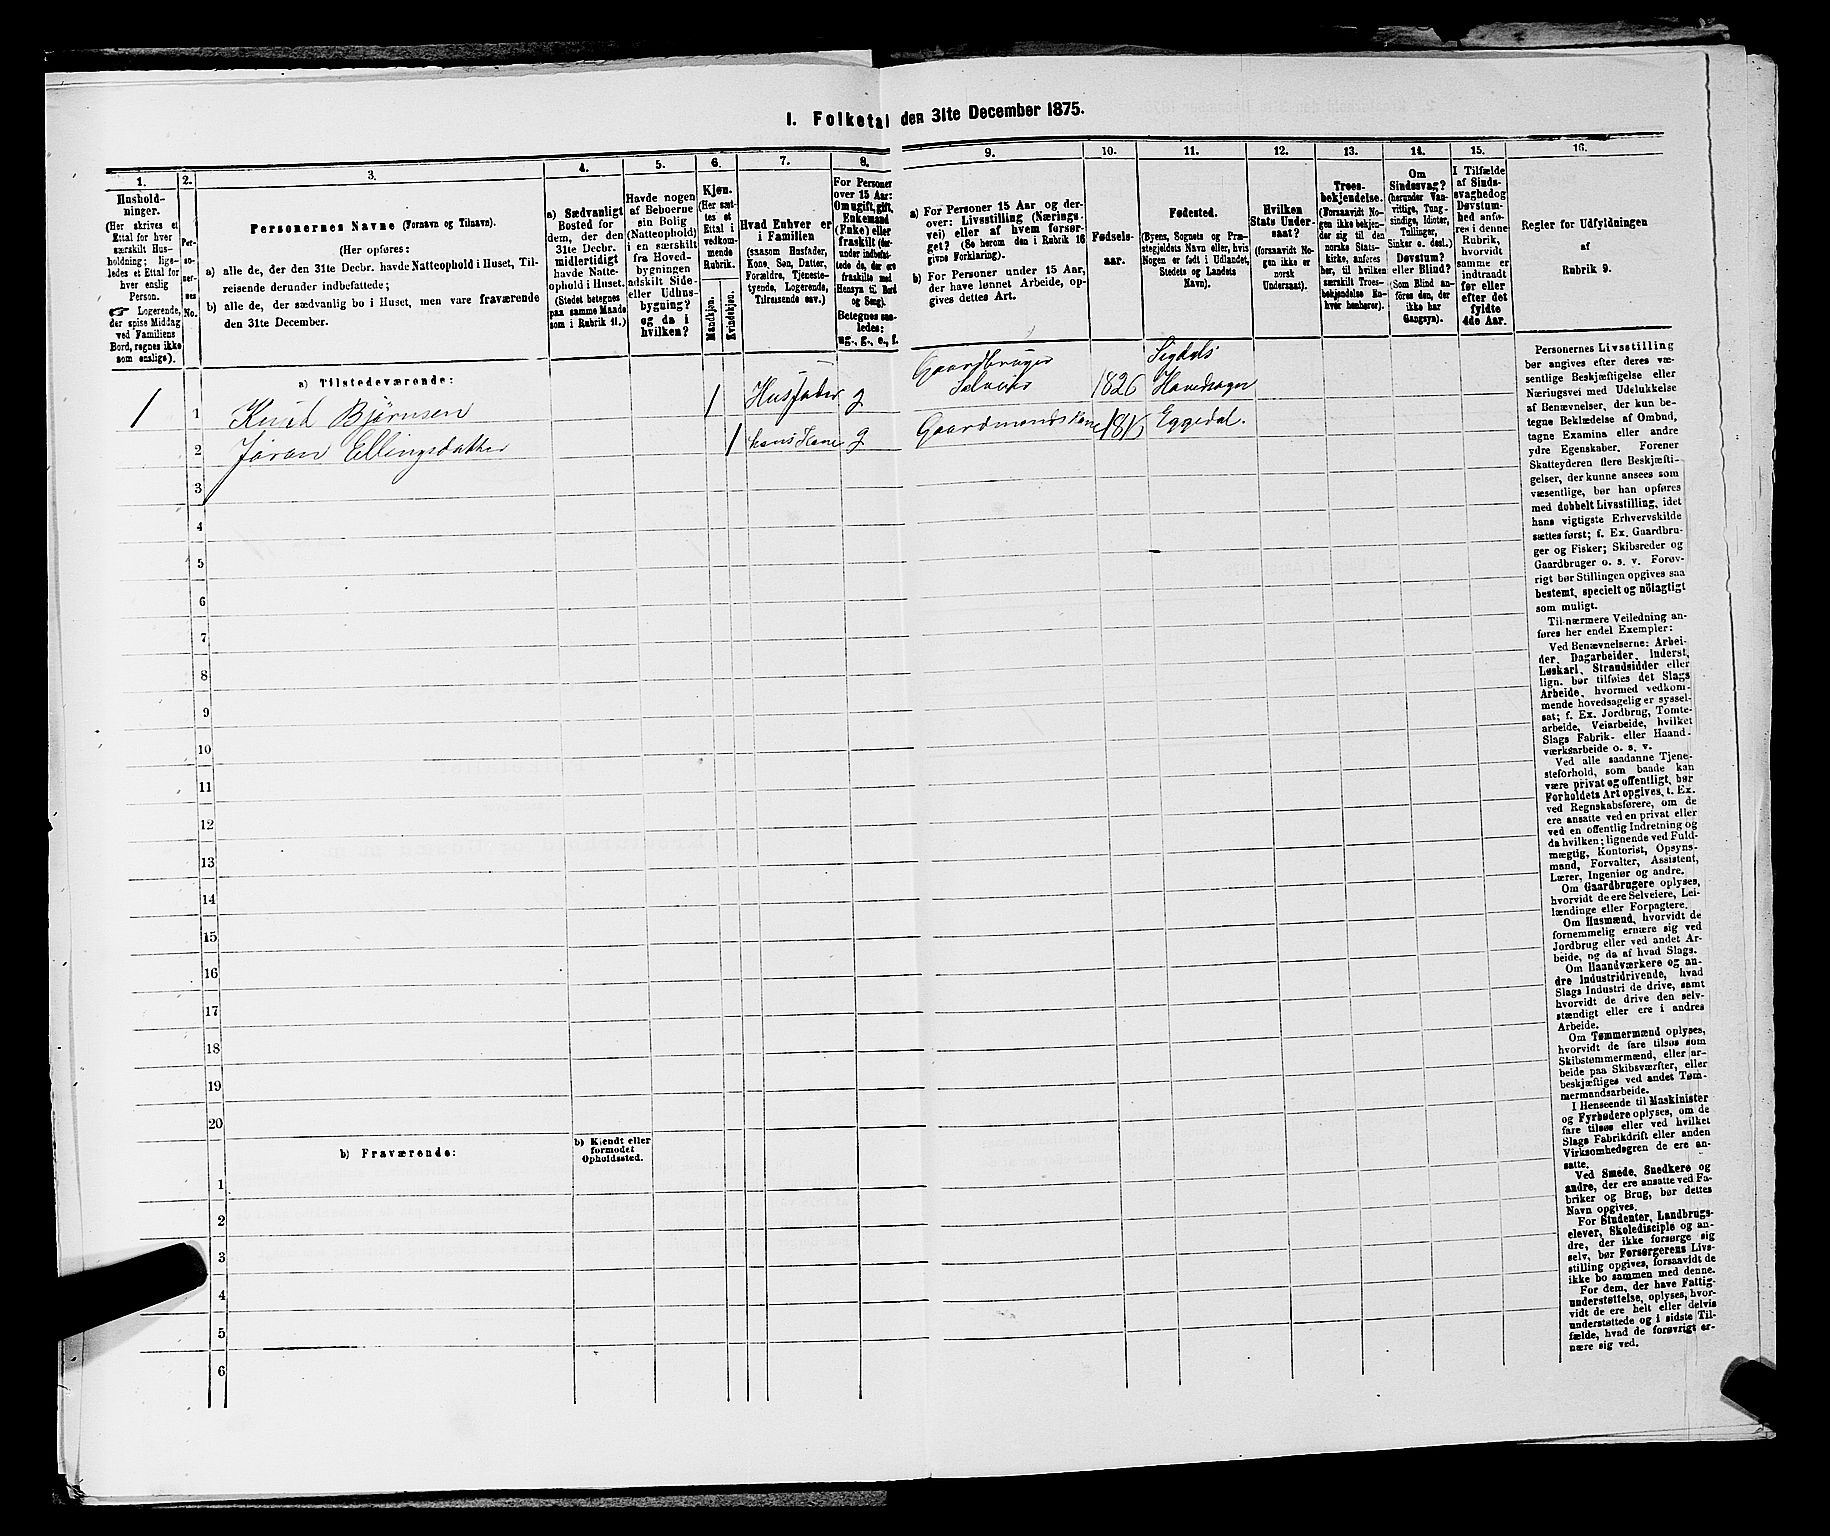 I. Folketal den 31te December 1875.
1.
Husholdninger.
(Her skrives et
Ettal for hver
særskilt Husholdning; ligeledes et Ettal for
hver enslig
Person.
☞ Logerende,
der spise Middag
ved Familiens
Bord, regnes ikke
som enslige).
2.
Personernes
No.
3.
Personernes Navne (Fornavn og Tilnavn).
(Her opføres:
a) alle de, der den 31te Decbr. havde Natteophold i Huset, Tilreisende derunder indbefattede;
b) alle de, der sædvanlig bo i Huset, men vare fraværende
den 31te December.
4.
a) Sædvanligt
Bosted for
dem, der den
31te Decbr.
midlertidigt
havde Natteophold i Huset.
(Stedet betegnes
paa samme Maade
som i Rubrik 11.)
5.
Havde nogen
af Beboerne
sin Bolig
(Natteophold)
i en særskilt
fra Hovedbygningen
adskilt Side- eller Udhusbygning?
og da i
hvilken?
6.
Kjøn.
(Her sættes et
Ettal i
vedkommende
Rubrik.
Mandkjøn.
Kvindekjøn.
7.
Hvad Enhver er
i Familien
(saasom Husfader,
Kone, Søn, Datter,
Forældre, Tjenestetyende, Logerende,
Tilreisende osv.)
8.
For Personer
over 15 Aar:
Om ugift, gift,
Enkemand
(Enke) eller
fraskilt
Betegnes saaledes:
ug., g., e., f.
9.
a) For Personer 15 Aar og derover: Livsstilling (Næringsvei) eller af hvem forsørget? (Se herom den i Rubrik 16
givne Forklaring).
b) For Personer under 15 Aar,
der have lønnet Arbeide, opgives dettes Art.
10.
Fødselsaar.
11.
Fødested.
(Byens, Sognets og Præstegjeldets Navn eller, hvis
Nogen er født i Udlandet,
Stedets og Landets
Navn).
12.
Hvilken
Stats Undersaat?
(forsaavidt Nogen ikke er
norsk
Undersaat).
13.
Troesbekjendelse.
(Forsaavidt Nogen ikke bekjender sig til den
norske Statskirke, anføres
her, til hvilken
særskilt Troesbekjendelse Enhver henhører).
14.
Om
Sindssvag?
(herunder Vanvittige, Tungsindige, Idioter,
Tullinger,
Sinker o. desl.)
Døvstum?
eller Blind?
(Som Blind anføres den, der
ikke har
Gangsyn).
15.
I Tilfælde
af Sindssvaghed og
Døvstumhed anføres i denne
Rubrik,
hvorvidt
samme er
indtraadt
før eller
efter det
fyldte
4de Aar.
16.
Regler for Udfyldningen
af
Rubrik 9.
a) Tilstedeværende:
1 1 Knud Bjørnsen 1 Husfader g Gaardbruger Selveier 1826 Sigdals Hovedsogn
2 Jøran Ellingsdatter 1 hans Kone g Gaardmands Kone 1815 Eggedal.
3
4
5
6
7
8
9
10
11
12
13
14
15
16
17
18
19
20
b) Fraværende:
b) Kjendt eller
formodet
Opholdssted.
1
2
3
4
5
6
Personernes Livsstilling
bør angives efter deres væsentlige Beskjæftigelse eller
Næringsvei med Udelukkelse
af Benævnelser, der kun betegne Beklædelse af Ombud,
tagne Examina eller andre
ydre Egenskaber. Forener
Skatteyderen flere Beskjæftigelser, der kunne ansees som
væsentlige, bør han opføres
med dobbelt Livsstilling, idet
hans vigtigste Erhvervskilde
sættes først; f. Ex. Gaardbruger og Fisker; Skibsreder og
Gaardbruger o. s. v. Forøvrigt bør Stillingen opgives saa
bestemt, specielt og nøiagtigt
som muligt.
Til nærmere Veiledning anføres her endel Exempler:
Ved Benævnelserne: Arbeider, Dagarbeider, Inderst,
Løskarl, Strandsidder eller
lign. bør tilføies det Slags
Arbeide, hvormed vedkommende hovedsagelig er sysselsat; f. Ex. Jordbrug, Tomtearbeide, Veiarbeide, hvilket
Slags Fabrik- eller Haandværksarbeide o. s. v.
Ved alle saadanne Tjenesteforhold, som baade kan
være privat og offentligt, bør
Forholdets Art opgives, t. Ex.
ved Regnskabsførere, om de
ere ansatte ved en privat eller
ved en offentlig Indretning og
da hvilken; lignende ved Fuldmægtig, Kontorist, Opsynsmand, Forvalter, Assistent,
Lærer, Ingeniør og andre.
Om Gaardbrugere oplyses,
hvorvidt de ere Selveiere, Leilændinge eller Forpagtere.
Om Husmænd, hvorvidt de
fornemmelig ernære sig ved
Jordbrug eller ved andet Arbeide, og da af hvad Slags.
Om Haandværkere og andre Industridrivende, hvad
Slags Industri de drive, samt
hvorvidt de drive den selvstændigt eller ere i andres
Arbeide.
Om Tømmermænd oplyses,
hvorvidt de fare tilsøs som
Skibstømmermænd, eller arbeide paa Skibsværfter, eller
beskjæftiges ved andet Tømmermandsarbeide.
I Henseende til Maskinister
og Fyrbødere oplyses, om de
fare tilsøs eller ved hvilket
Slags Fabrikdrift eller anden
Virksomhedsgren de ere ansatte.
Ved Smede, Snedkere og
andre, der ere ansatte ved Fabriker og Brug, bør dettes
Navn opgives.
For Studenter, Landbrugselever, Skoledisciple og andre, der ikke forsørge sig
selv, bør Forsørgerens Livsstilling opgives, forsaavidt de
ikke bo sammen med denne.
For dem, der have Fattigunderstøttelse, oplyses, hvorvidt de ere helt eller delvis
understøttede og i sidste Tilfælde, hvad de forøvrigt ernære sig ved.